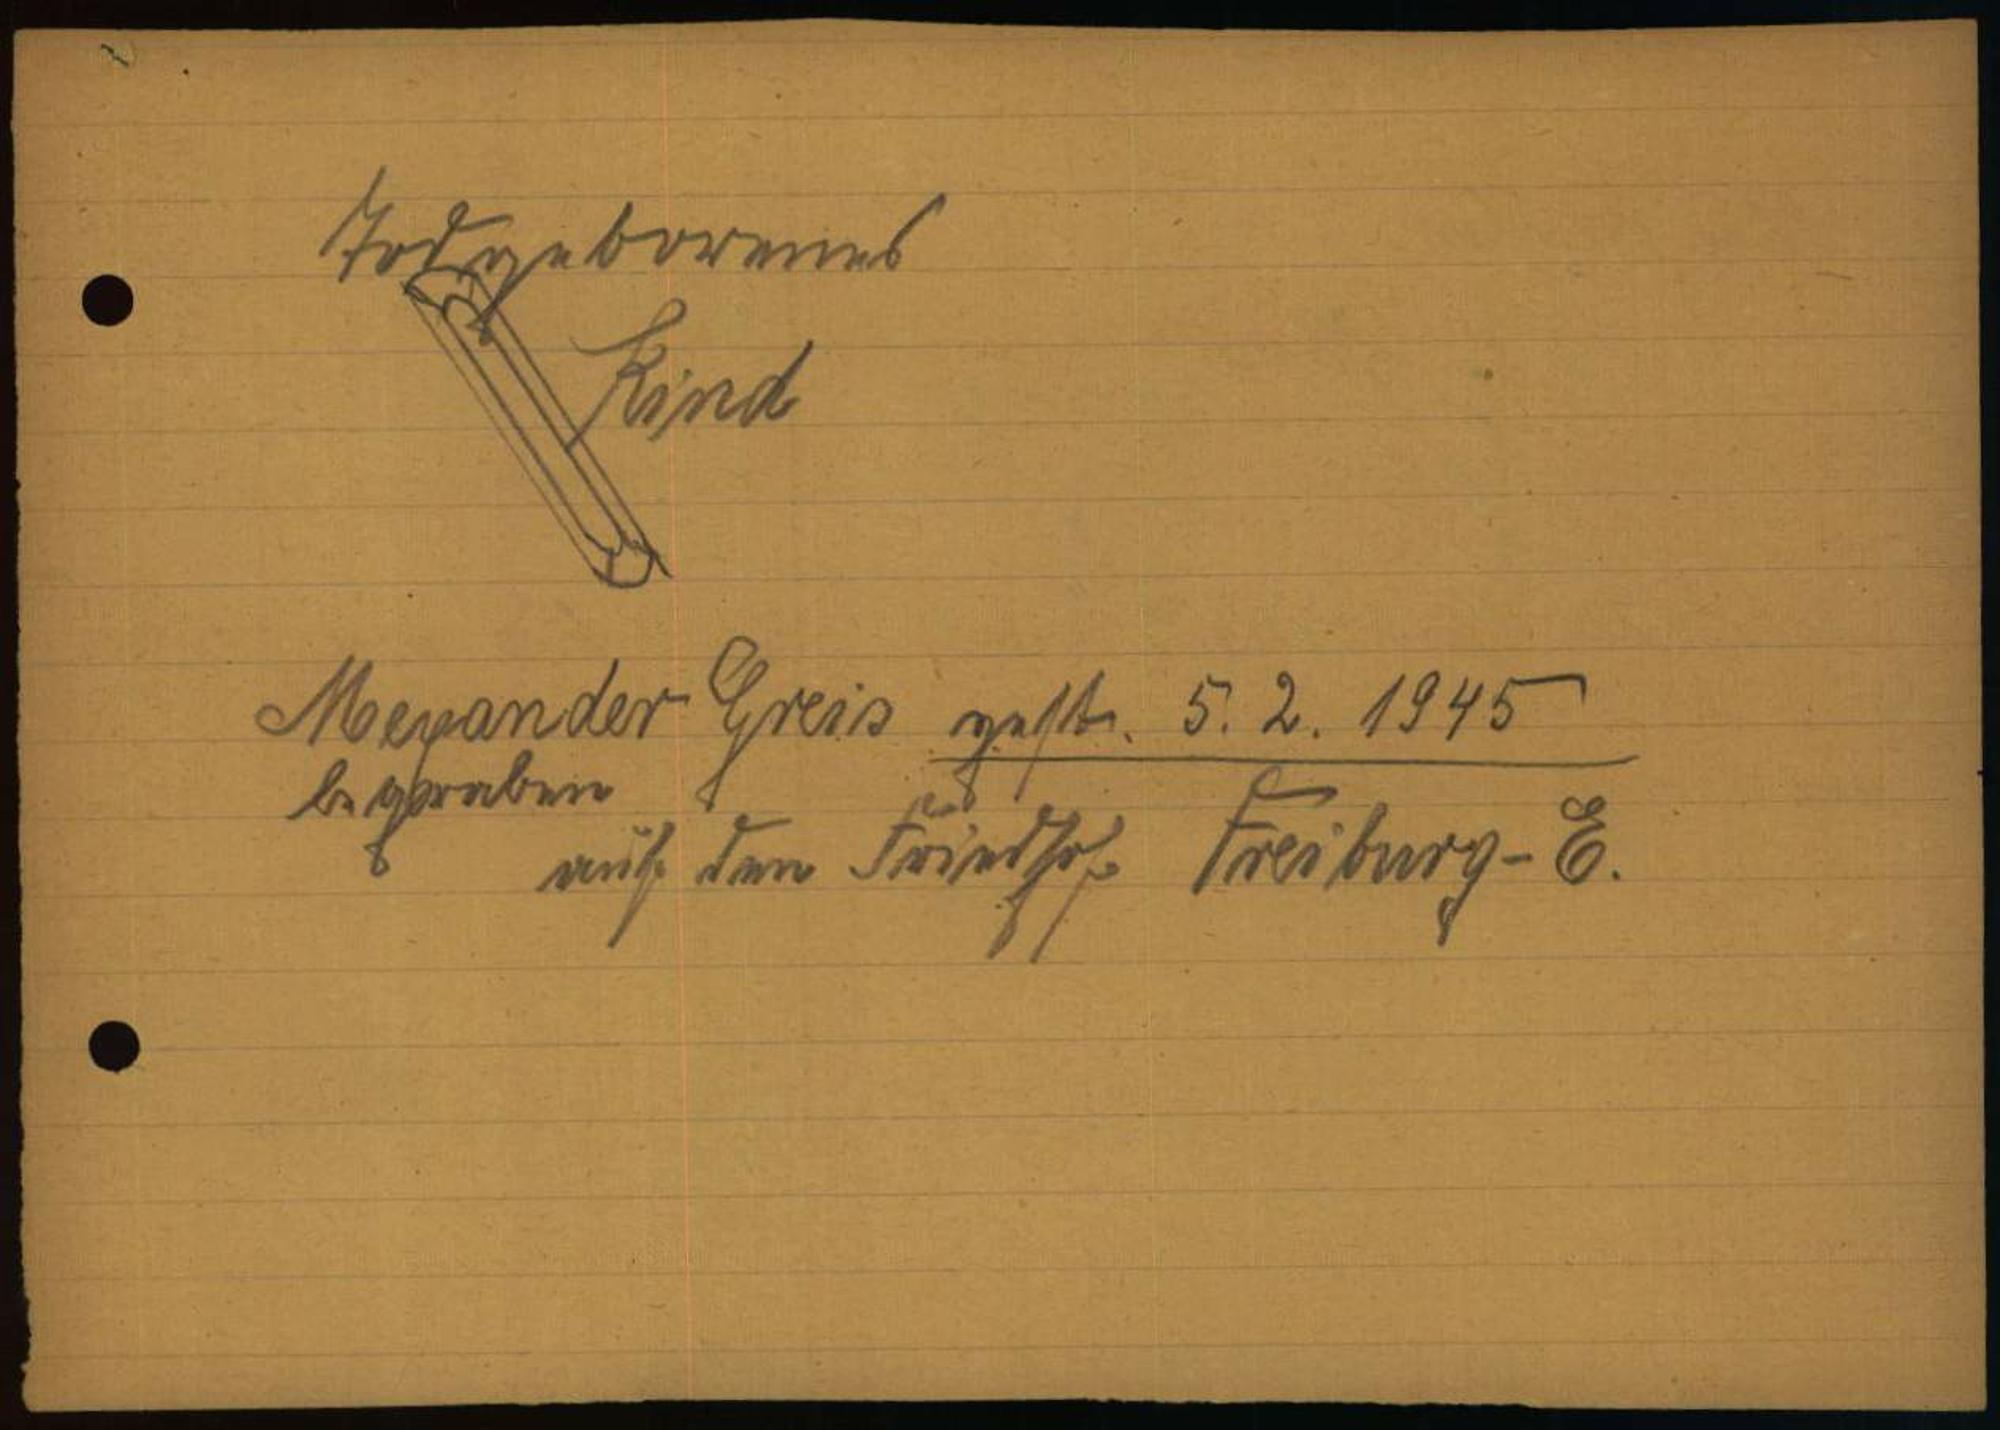 Todgeborenes
Kind
Mexander Greis gestb. 5. 2. 1945
begraben
auf den Friedhof Freiburg-E.